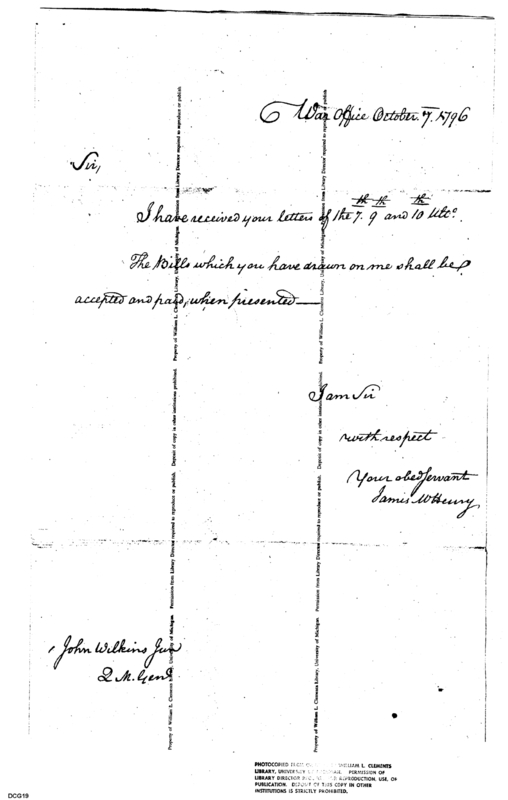 War Office October 7. 1796
Sir,
I have received your letters of the 7th. 9th and 10th Ulto.
The Bills which you have drawn on me shall be
accepted and paid, when presented —
I am Sir
with respect
Your obed servant
James McHenry
John Wilkins Jun
Q M. Genl
Property of William L. Clements Library, University of Michigan. Permission from Library Director required to reproduce or publish. Deposit of copy in other institutions prohibited.
Property of William L. Clements Library, University of Michigan. Permission from Library Director required to reproduce or publish. Deposit of copy in other institutions prohibited.
PHOTOCOPIED FROM WILLIAM L. CLEMENTS
LIBRARY, UNIVERSITY PERMISSION OF
LIBRARY DIRECTOR REPRODUCTION, USE, OR
PUBLICATION. DEPOSIT OF THIS COPY IN OTHER
INSTITUTIONS IS STRICTLY PROHIBITED.
DCG19